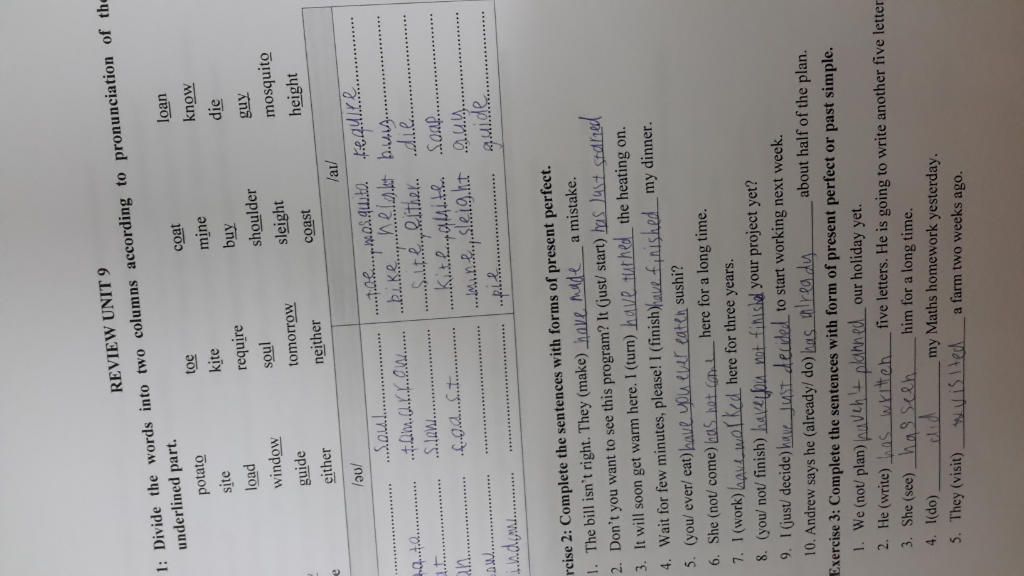 REVIEW UNIT 9
1: Divide the words into two columns according to pronunciation of the
underlined part.
potato toe coat loan
site kite mine know
load require buy die
window soul shoulder guy
guide tomorrow sleight mosquito
either neither coast height
/əʊ/ /aɪ/
soul toe, mosquito require
bike, height buy
slow site, either die
coast kite, quite soap
mine, sleight guy
pie guide
rcise 2: Complete the sentences with forms of present perfect.
1. The bill isn't right. They (make) have made a mistake.
2. Don't you want to see this program? It (just/ start) has just started
3. It will soon get warm here. I (turn) have turned the heating on.
4. Wait for few minutes, please! I (finish) have finished my dinner.
5. (you/ ever/ eat) have you ever eaten sushi?
6. She (not/ come) has not come here for a long time.
7. I (work) have worked here for three years.
8. (you/ not/ finish) have you not finishd your project yet?
9. I (just/ decide) have just decided to start working next week.
10. Andrew says he (already/ do) has already about half of the plan.
Exercise 3: Complete the sentences with form of present perfect or past simple.
1. We (not/ plan) haven't planned our holiday yet.
2. He (write) has written five letters. He is going to write another five letter
3. She (see) has seen him for a long time.
4. I(do) did my Maths homework yesterday.
5. They (visit) visited a farm two weeks ago.